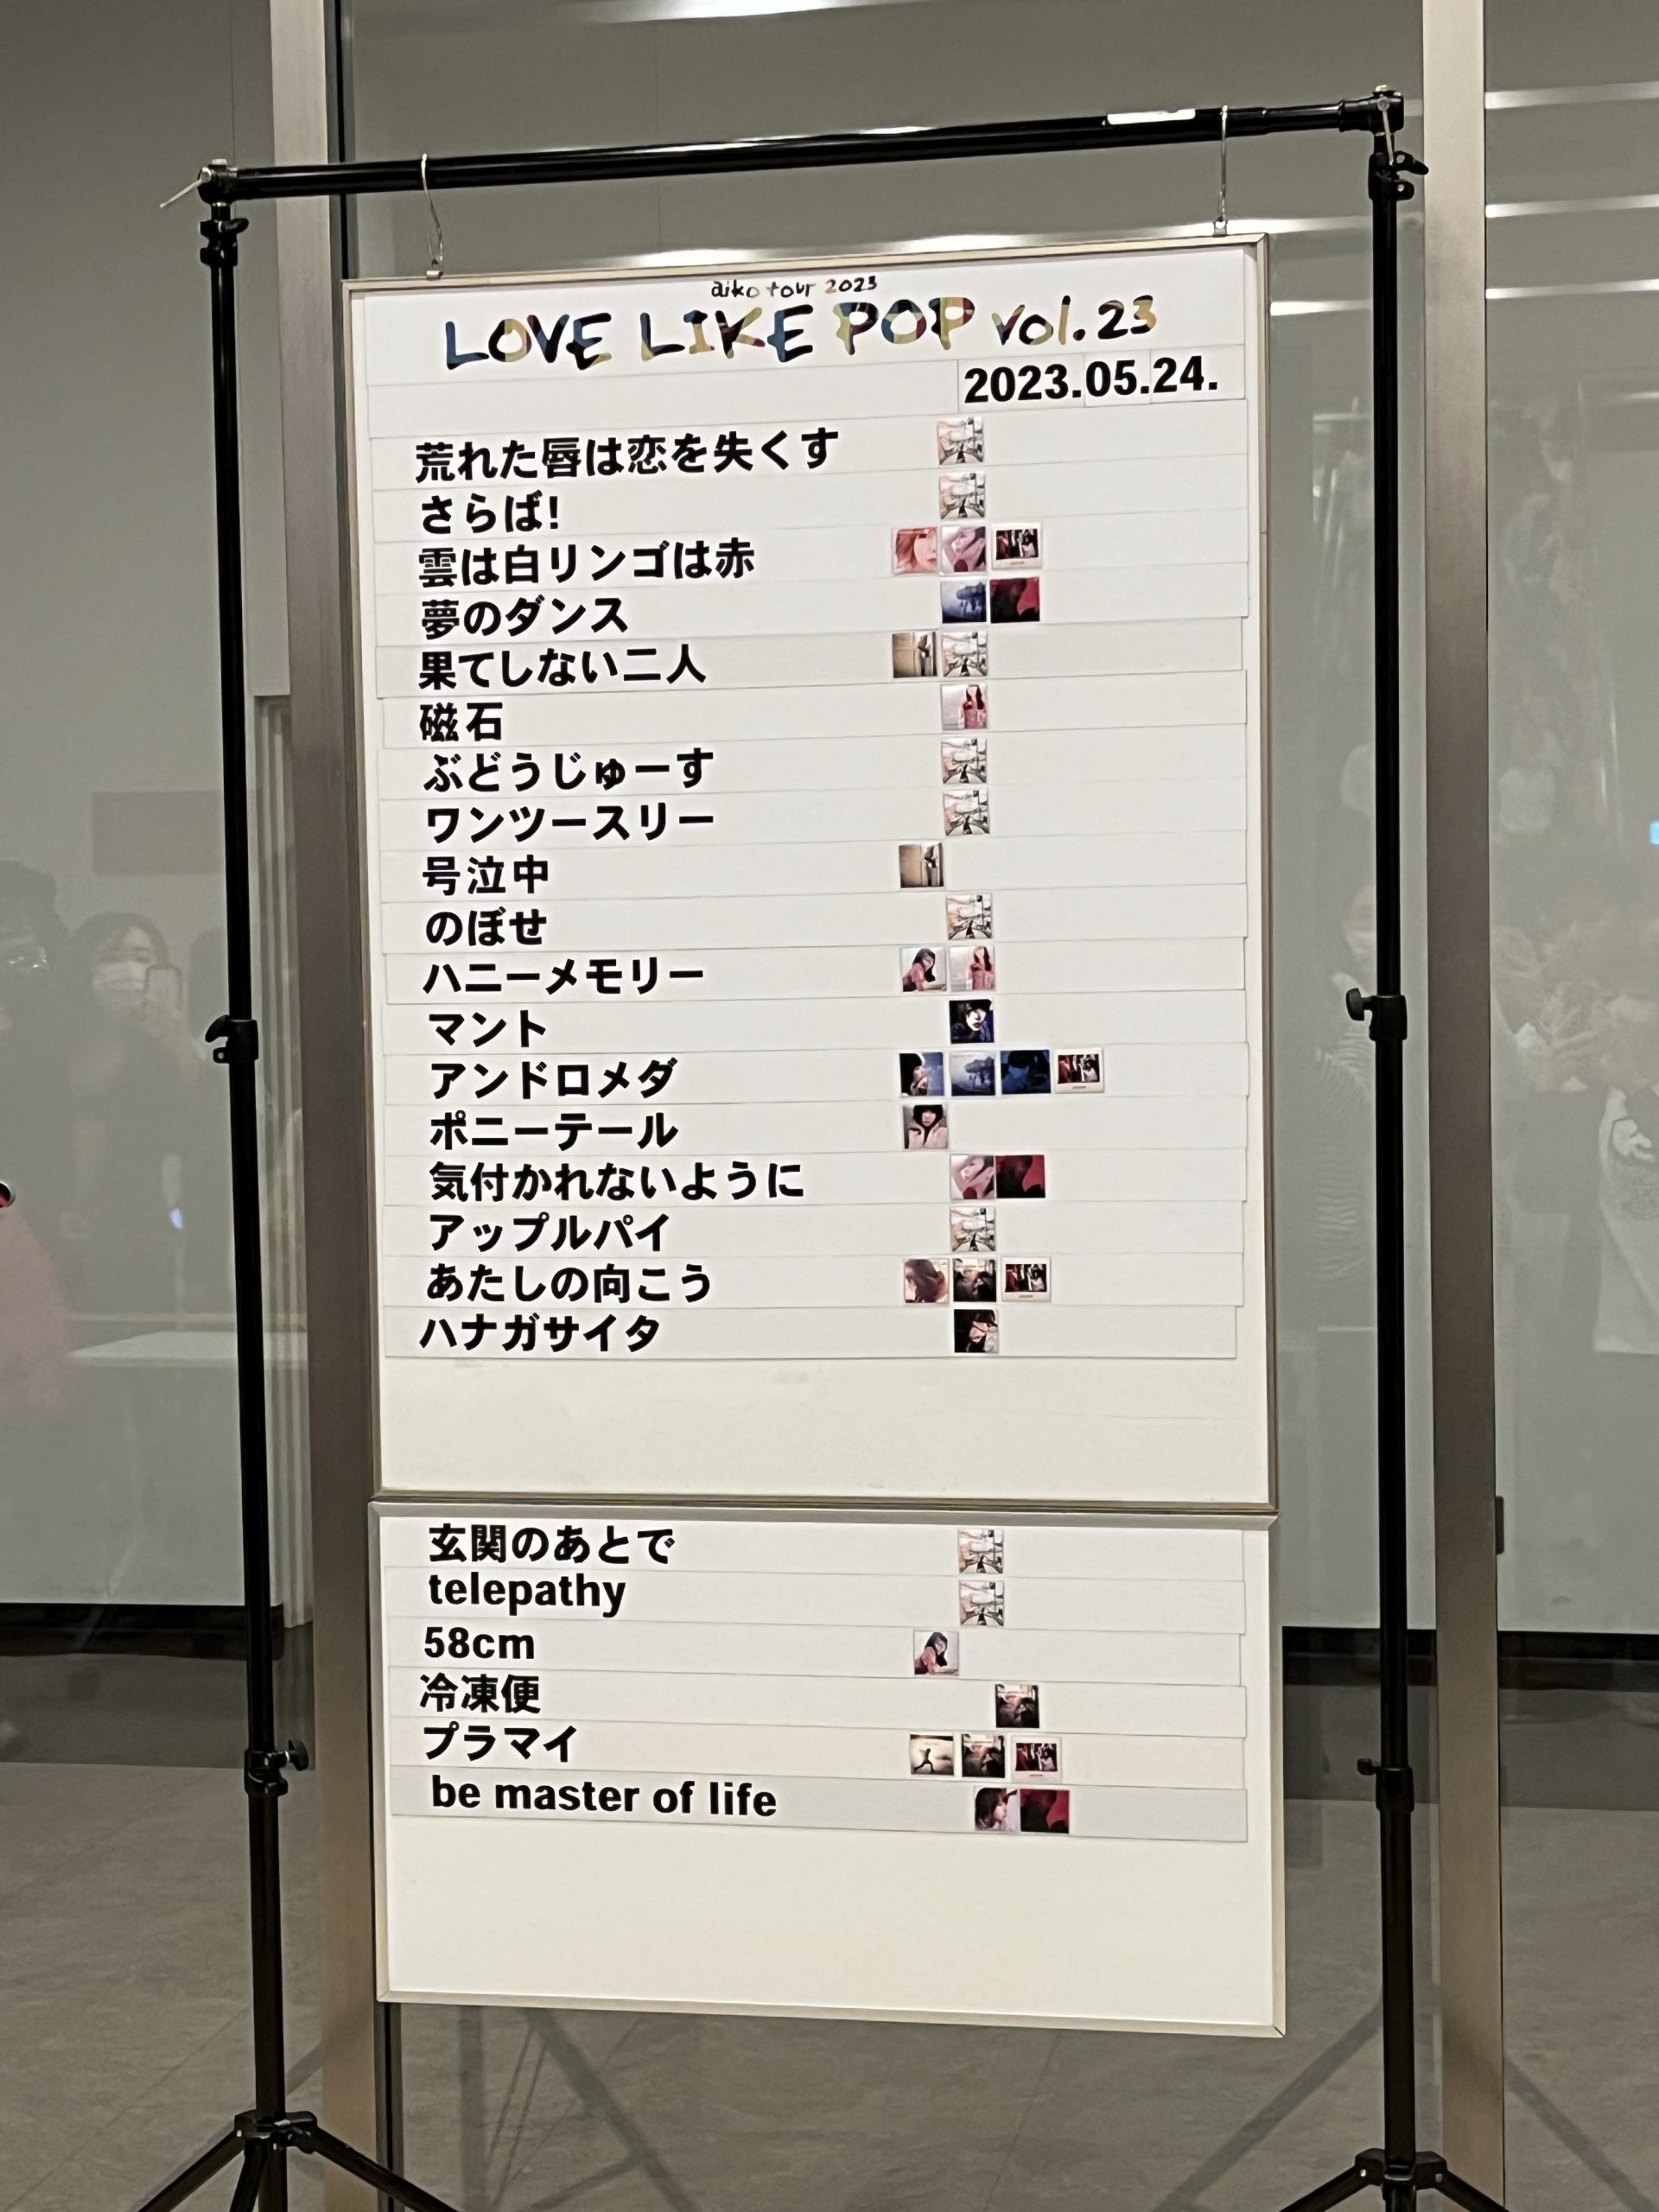 aiko tour 2023
LOVE LIKE POP vol.23
2023.05.24.
荒れた唇は恋を失くす
さらば!
雲は白リンゴは赤
夢のダンス
果てしない二人
磁石
ぶどうじゅーす
ワンツースリー
号泣中
のぼせ
ハニーメモリー
マント
アンドロメダ
ポニーテール
気付かれないように
アップルパイ
あたしの向こう
ハナガサイタ
玄関のあとで
telepathy
58cm
冷凍便
プラマイ
be master of life